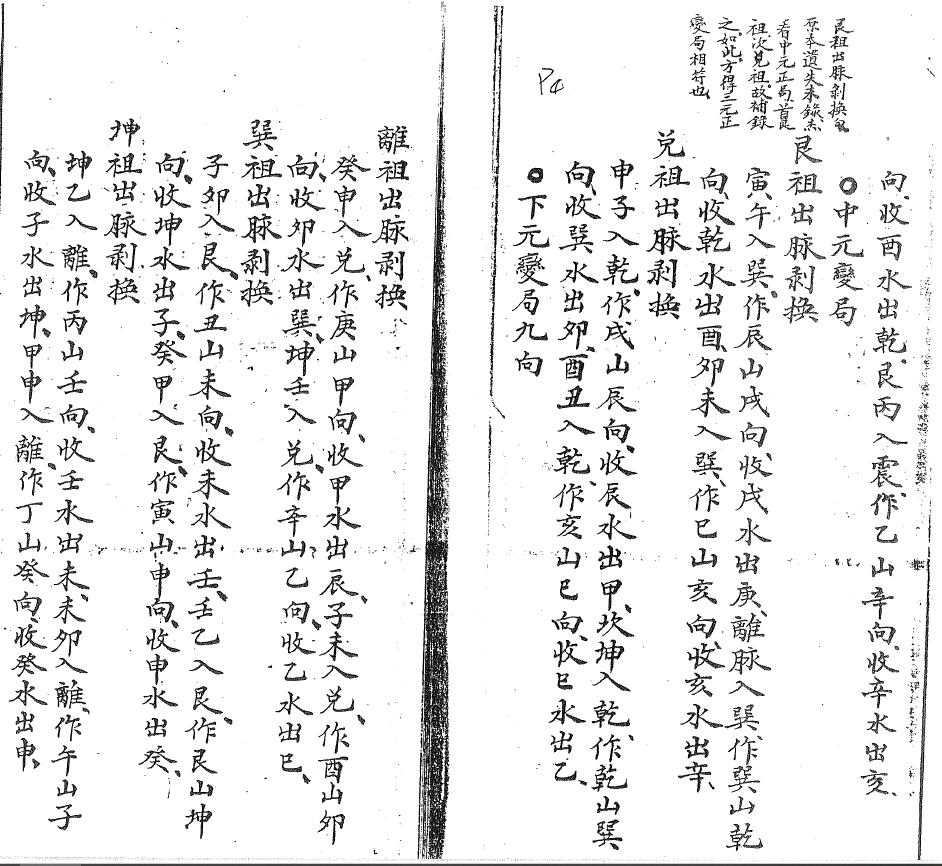 艮祖出脉剥換
原本遺失未錄
看中元正局首艮
祖次兑祖故補錄
之如此方得三元正
變局相符也
P4
向、收酉水出乾、艮丙入震、作乙山辛向、收辛水出亥、
〇中元變局
艮祖出脉剥換
寅午入巽、作辰山戌向、收戌水出庚、離脉入巽、作巽山乾
向、收乾水出酉、卯未入巽、作巳山亥向、收亥水出辛、
兑祖出脉剥換
申子入乾、作戌山辰向、收辰水出甲、坎坤入乾、作乾山巽
向、收巽水出卯、酉丑入乾、作亥山巳向、收巳水出乙、
〇下元變局九向
離祖出脉剥換
癸申入兑、作庚山甲向、收甲水出辰、子未入兑、作酉山卯
向、收卯水出巽、坤壬入兑、作辛山乙向、收乙水出巳、
巽祖出脉剥換
子卯入艮、作丑山未向、收未水出壬、壬乙入艮、作艮山坤
向、收坤水出子、癸甲入艮、作寅山申向、收申水出癸、
坤祖出脉剥換
坤乙入離、作丙山壬向、收壬水出未、未卯入離、作午山子
向、收子水出坤、甲申入離、作丁山癸向、收癸水出申、